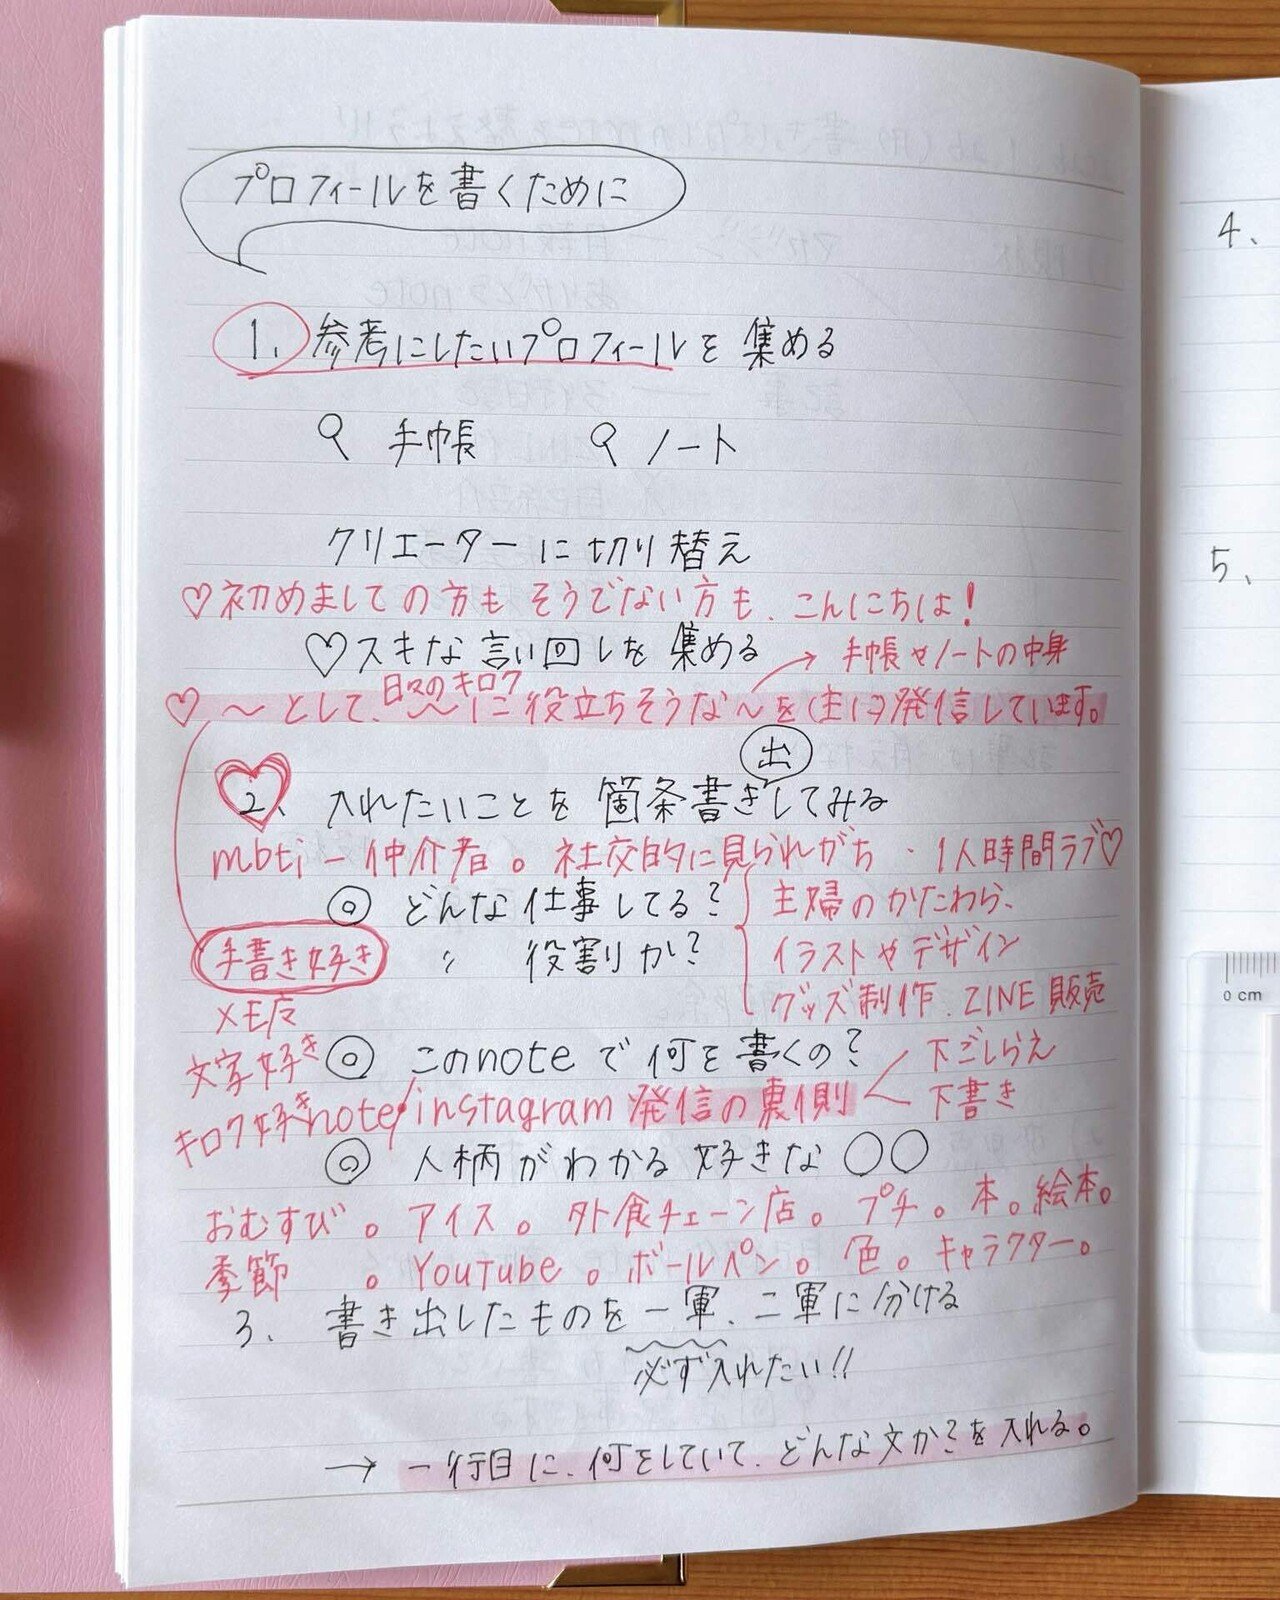 プロフィールを書くために
1、参考にしたいプロフィールを集める
手帳 ノート
クリエーターに切り替え
♡初めましての方もそうでない方も、こんにちは!
♡スキな言い回しを集める → 手帳やノートの中身
日々のキロク
♡ 〜として、〜に役立ちそうな〜を(主に)発信しています。
出
2、入れたいことを箇条書きしてみる
mbti − 仲介者。社交的に見られがち・1人時間ラブ♡
◎ どんな仕事してる? 主婦のかたわら、
手書き好き 〃 役割りか? イラストやデザイン
メモ魔 グッズ制作、ZINE販売
文字好き ◎ このnoteで何を書くの? 下ごしらえ
キロク好き note/instagram 発信の裏側 下書き
◎ 人柄がわかる好きな○○
おむすび。アイス。外食チェーン店。プチ。本。絵本。
季節 。YouTube。ボールペン。色。キャラクター。
3、書き出したものを一軍、二軍に分ける
必ず入れたい!!
→ 一行目に、何をしていて、どんな文か?を入れる。
4、
5、
0 cm